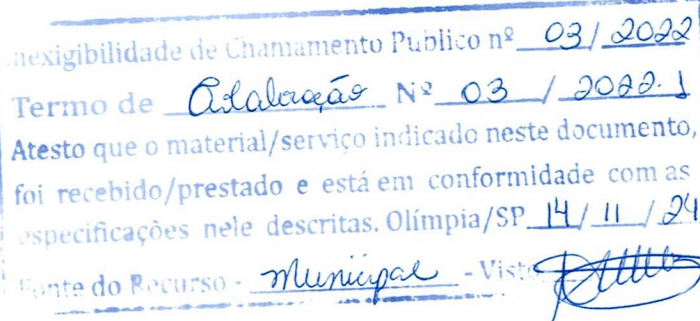 Inexigibilidade de Chamamento Publico nº 03/2022
Termo de Colaboração Nº 03 / 2022.
Atesto que o material/serviço indicado neste documento,
foi recebido/prestado e está em conformidade com as
especificações nele descritas. Olímpia/SP 14/ 11 / 24
Fonte do Recurso - Municipal - Visto